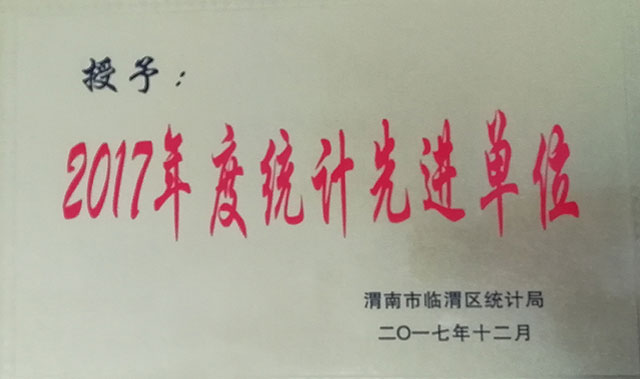 授予：
2017年度统计先进单位
渭南市临渭区统计局
二〇一七年十二月